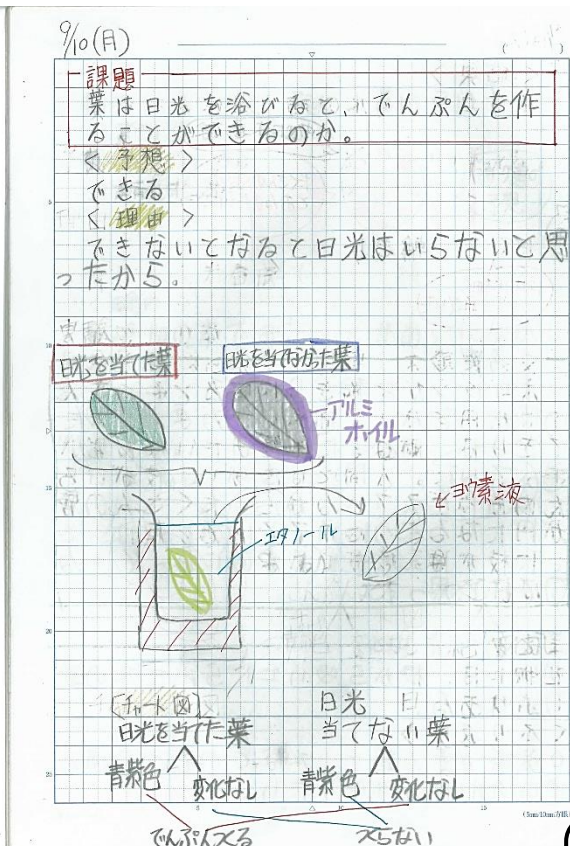 9/10(月)
課題
葉は日光を浴びると、でんぷんを作
ることができるのか。
<予想>
できる
<理由>
できないとなると日光はいらないと思
ったから。
日光を当てた葉
日光を当てなかった葉
アルミ
ホイル
ヨウ素液
エタノール
[チャート図]
日光を当てた葉
日光
当てない葉
青紫色
変化なし
青紫色
変化なし
でんぷん
つくらない